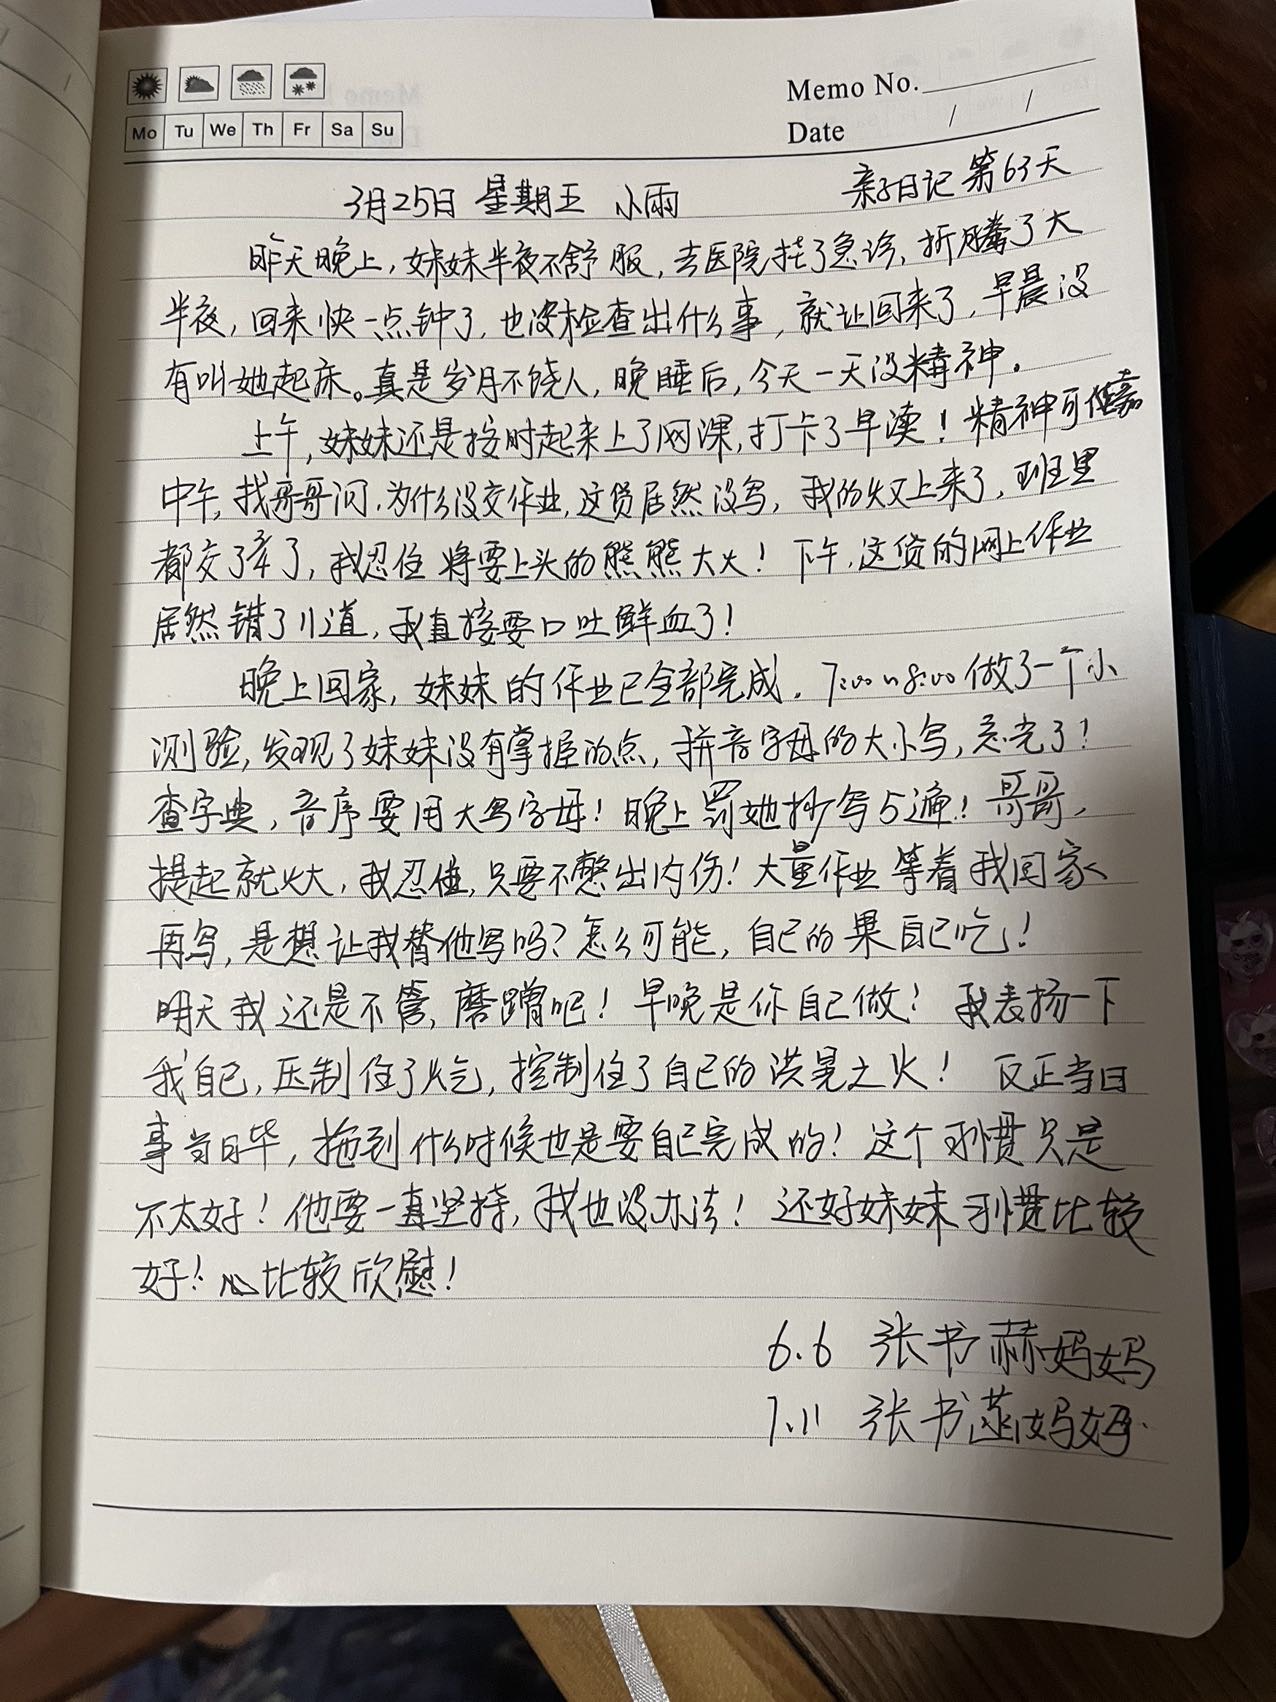 Memo No.
Mo Tu We Th Fr Sa Su
Date / /
3月25日 星期五 小雨 亲子日记 第63天
昨天晚上,妹妹半夜不舒服,去医院挂了急诊,折腾了大
半夜,回来快一点钟了,也没检查出什么事,就让回来了,早晨没
有叫她起床。真是岁月不饶人,晚睡后,今天一天没精神。
上午,妹妹还是按时起来上了网课,打卡了早读!精神可嘉
中午,找哥哥问,为什么没交作业,这货居然没写,我的火又上来了,班里
都交了齐了,我忍住将要上头的熊熊大火!下午,这货的网上作业
居然错了11道,我直接要口吐鲜血了!
晚上回家,妹妹的作业已全部完成,7:00~8:00做了一个小
测验,发现了妹妹没有掌握的点,拼音字母的大小写,忘光了!
查字典,音序要用大写字母!晚上罚她抄写5遍!哥哥,
提起就火大,我忍住,只要不憋出内伤!大量作业等着我回家
再写,是想让我替他写吗?怎么可能,自己的果自己吃!
明天我还是不管,磨蹭吧!早晚是你自己做!我表扬一下
我自己,压制住了火气,控制住了自己的洪晃之火!反正当日
事当日毕,拖到什么时候也是要自己完成的!这个习惯只是
不太好!他要一直坚持,我也没办法!还好妹妹习惯比较
好!心比较欣慰!
6.6 张书赫妈妈
7.11 张书菡妈妈